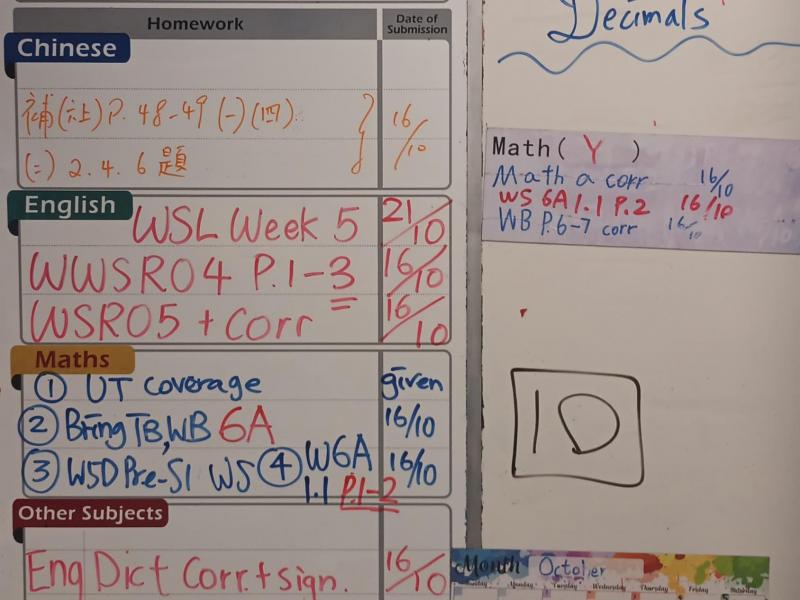 Homework
Date of Submission
Chinese
補(六上) P. 48-49 (一) (四)
16/10
(二) 2. 4. 6 題
English
WSL Week 5
21/10
WWSR04 P.1-3
16/10
WSR05 + Corr
16/10
Maths
① UT coverage
given
② Bring TB, WB 6A
16/10
③ W5D Pre-S1 WS ④ W6A 1.1 P.1-2
16/10
Other Subjects
Eng Dict Corr. + sign.
16/10
Decimals
Math ( Y )
Math a corr 16/10
WS 6A 1.1 P.2 16/10
WB P.6-7 corr 16/10
1D
Month October
Monday Tuesday Wednesday Thursday Friday Saturday